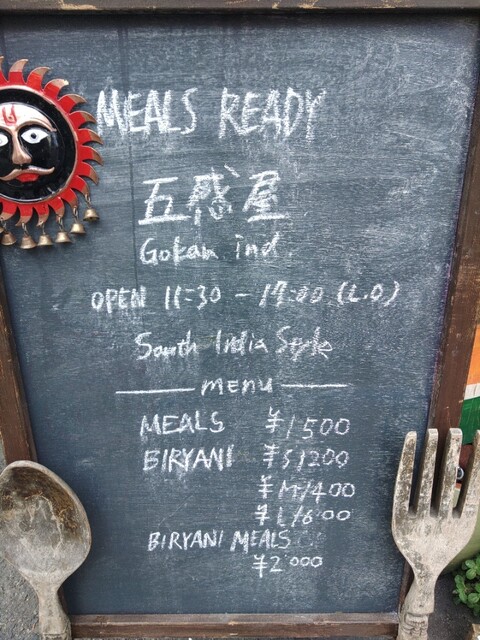 MEALS READY
五感屋
Gokan ind.
OPEN 11:30 - (L.O)
South India Style
menu
MEALS ¥1500
BIRYANI ¥S1200
¥M1400
¥L1600
BIRYANI MEALS
¥2000